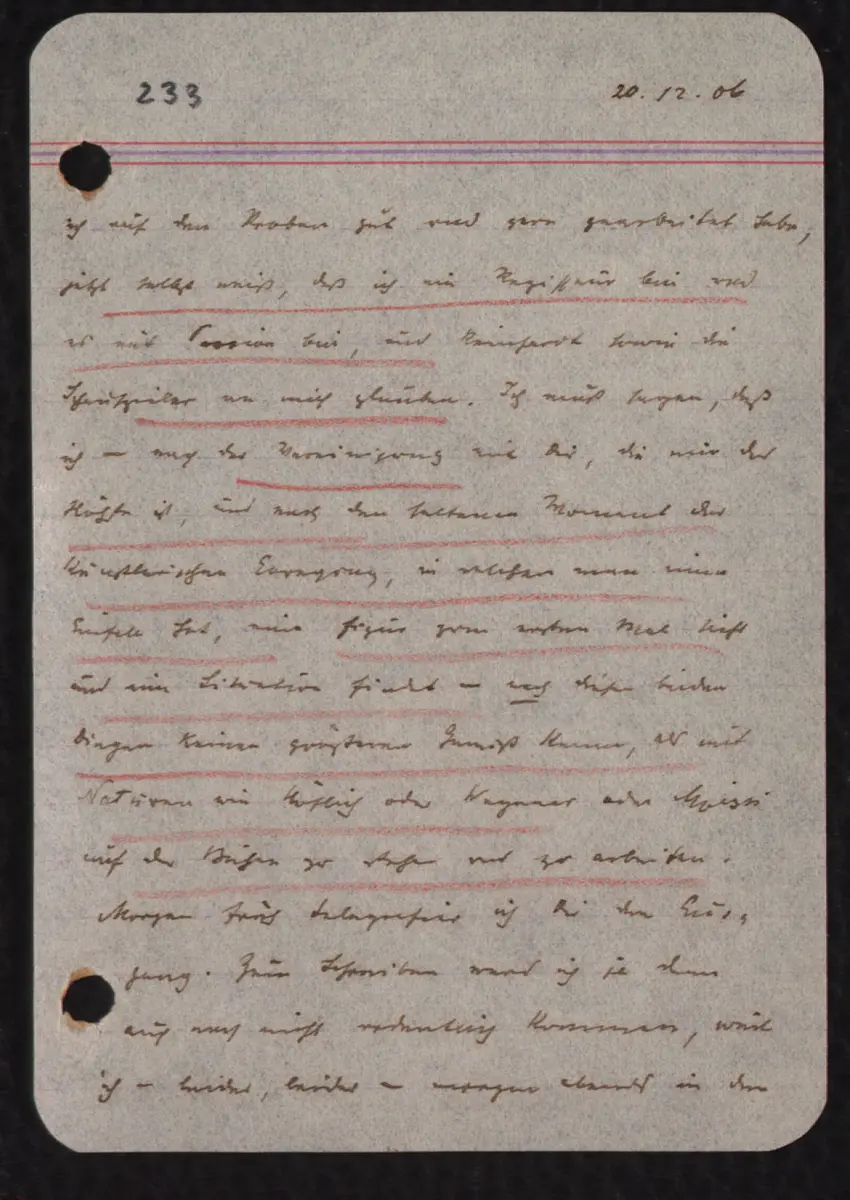 233
20.12.06
ich auf den Proben gut und gern gearbeitet habe,
jetzt selbst weiß, daß ich ein Regisseur bin und
es mit Passion bin, und Reinhardt sowie die
Schauspieler an mich glauben. Ich muß sagen, daß
ich – nach der Vereinigung mit Dir, die mir das
Höchste ist, und nach den seltenen Moment der
künstlerischen Erregung, in welchen man einen
Einfall hat, eine Figur zum ersten Mal sieht
und eine Situation findet – nach diesen beiden
Dingen keinen größeren Genuß kenne, als mit
Naturen wie Höflich oder Wegener oder Moissi
auf der Bühne zu stehen und zu arbeiten.
Morgen früh telegrafier ich Dir den Aus-
gang. Zum Schreiben werd ich ja dann
auch noch nicht ordentlich kommen, weil
ich – leider, leider – morgen abends in den